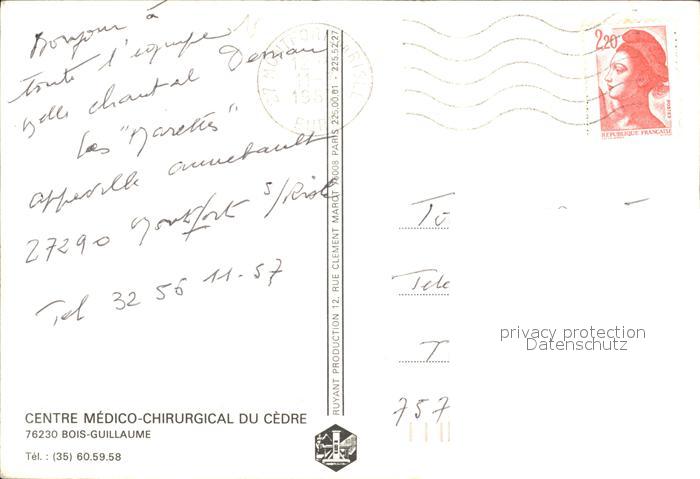 Bonjour à
toute l'équipe
Melle chantal
Les "Marettes"
appeville annebault
27290 Montfort s/Risle
Tel 32 56 11-57
CENTRE MÉDICO-CHIRURGICAL DU CÈDRE
76230 BOIS-GUILLAUME
Tél. : (35) 60.59.58
RUYANT PRODUCTION 12, RUE CLEMENT MAROT 75008 PARIS 225.00.61 - 225.52.27
27 MONTFORT
2,20
REPUBLIQUE FRANÇAISE
Tele
757
privacy protection
Datenschutz